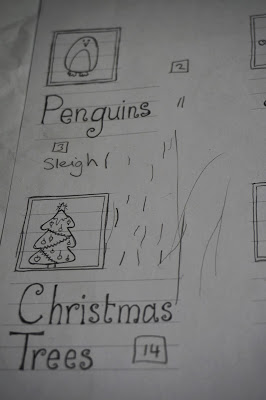 2
Penguins
3
Sleigh
Christmas
Trees 14